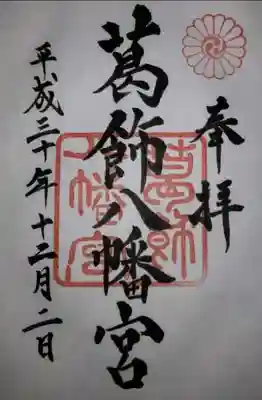 奉拝
葛飾八幡宮
平成三十年十二月二日
葛飾八幡宮